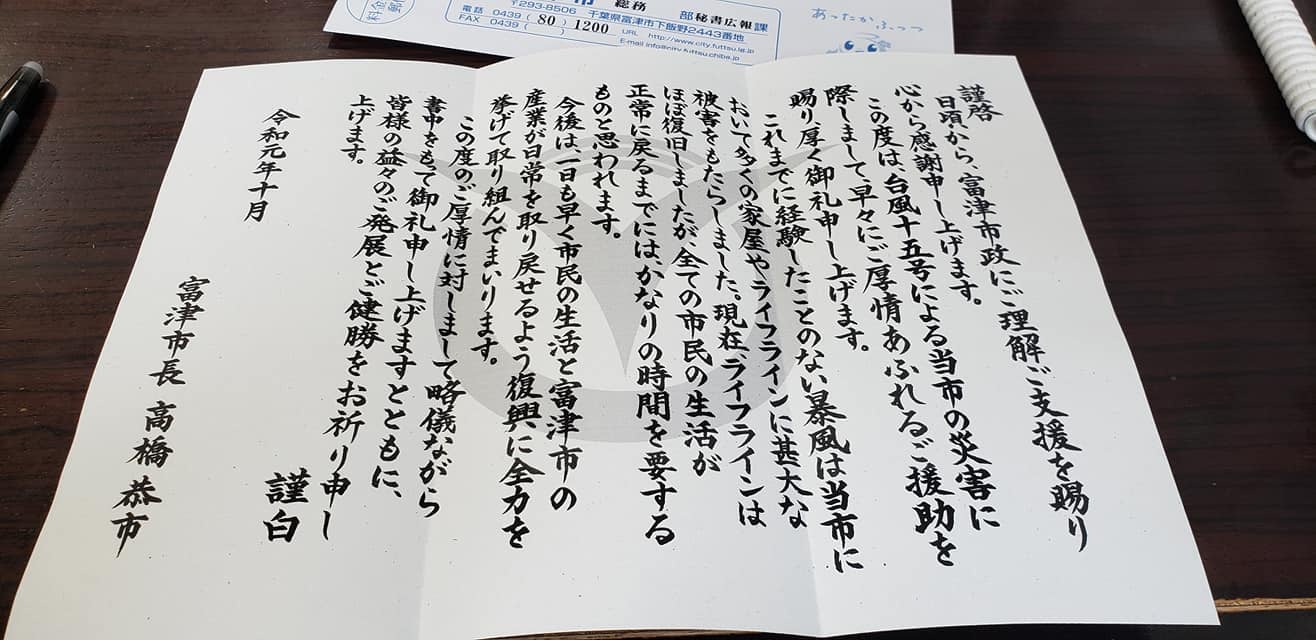 料金
郵
市 総務 部秘書広報課
〒293-8506 千葉県富津市下飯野2443番地
電話 0439(80)1200
FAX 0439( )
URL http://www.city.futtsu.lg.jp
E-mail info@city.futtsu.chiba.jp
あったか ふっつ
謹啓
日頃から、富津市政にご理解ご支援を賜り
心から感謝申し上げます。
この度は、台風十五号による当市の災害に
際しまして、早々にご厚情あふれるご援助を
賜り、厚く御礼申し上げます。
これまでに経験したことのない暴風は当市に
おいて多くの家屋やライフラインに甚大な
被害をもたらしました。現在、ライフラインは
ほぼ復旧しましたが、全ての市民の生活が
正常に戻るまでには、かなりの時間を要する
ものと思われます。
今後は、一日も早く市民の生活と富津市の
産業が日常を取り戻せるよう復興に全力を
挙げて取り組んでまいります。
この度のご厚情に対しまして略儀ながら
書中をもて御礼申し上げますとともに、
皆様の益々のご発展とご健勝をお祈り申し
上げます。
謹白
令和元年十月
富津市長 高橋 恭市